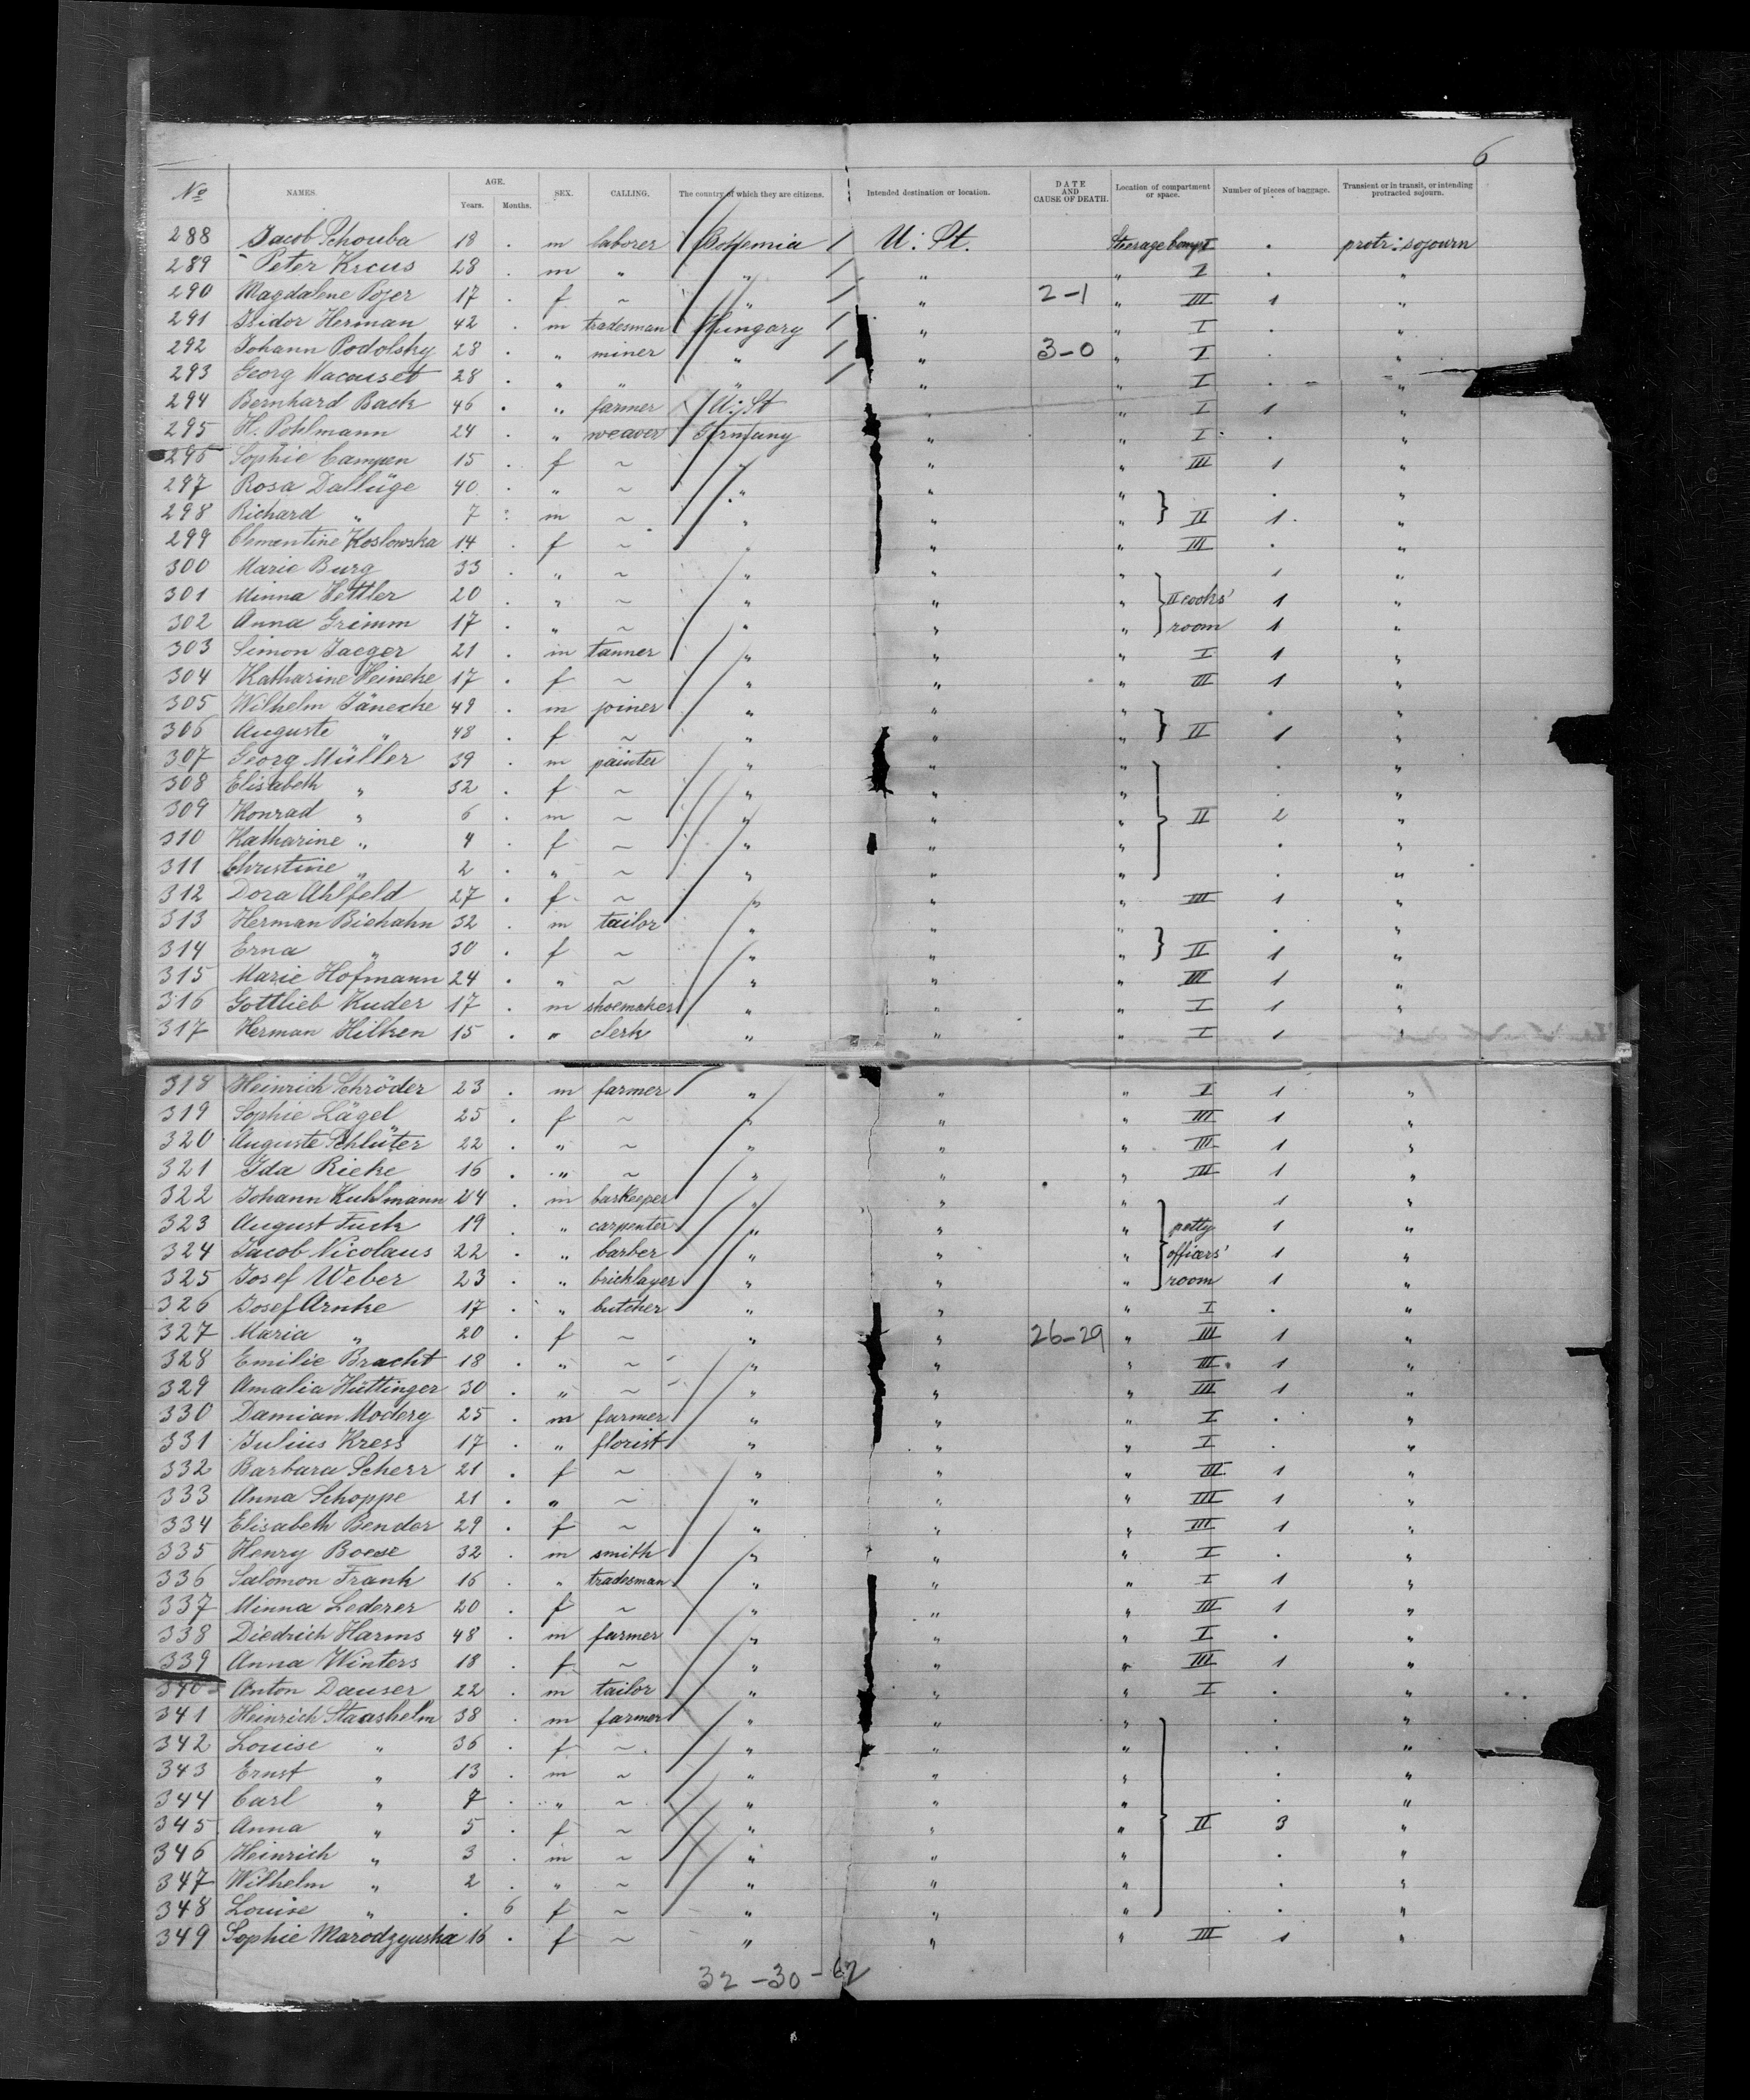 6
No NAMES. AGE. Years. Months. SEX. CALLING. The country of which they are citizens. Intended destination or location. DATE AND CAUSE OF DEATH. Location of compartment or space. Number of pieces of baggage. Transient or in transit, or intending protracted sojourn.
288 Jacob Schouba 18 . m laborer Bohemia U: St. Steerage comp I . protr: sojourn
289 Peter Krcus 28 . m " " " " I . "
290 Magdalene Pojer 17 . f ~ " " 2-1 " III 1 "
291 Isidor Herman 42 . m tradesman Hungary " " I . "
292 Johann Podolsky 28 . " miner " " 3-0 " I . "
293 Georg Macauset 28 . " " " " " I . "
294 Bernhard Back 46 . " farmer U: St " " I 1 "
295 H. Pohlmann 24 . " weaver Germany " " I . "
296 Sophie Campen 15 . f ~ " " " III 1 "
297 Rosa Dallüge 40 . " ~ " " " . "
298 Richard " 7 . m ~ " " " } II 1 "
299 Clementine Koslowska 14 . f ~ " " " III . "
300 Marie Burg 33 . " ~ " " " 1 "
301 Minna Vettler 20 . " ~ " " " } II cooks' 1 "
302 Anna Grimm 17 . " ~ " " " room 1 "
303 Simon Jaeger 21 . m tanner " " " I 1 "
304 Katharine Heineke 17 . f ~ " " " III 1 "
305 Wilhelm Jänecke 49 . m joiner " " " . "
306 Auguste " 48 . f ~ " " " } II 1 "
307 Georg Müller 39 . m painter " " " . "
308 Elisabeth " 32 . f ~ " " " . "
309 Konrad " 6 . m ~ " " " } II 2 "
310 Katharine " 4 . f ~ " " " . "
311 Christine " 2 . " ~ " " " . "
312 Dora Ahlfeld 27 . f ~ " " " III 1 "
313 Herman Biehahn 32 . m tailor " " " . "
314 Erna " 30 . f ~ " " " } II 1 "
315 Marie Hofmann 24 . " ~ " " " III 1 "
316 Gottlieb Kuder 17 . m shoemaker " " " I 1 "
317 Herman Hilken 15 . " clerk " " " I 1 "
318 Heinrich Schröder 23 . m farmer " " " I 1 "
319 Sophie Lägel 25 . f ~ " " " III 1 "
320 Auguste Schlüter 22 . " ~ " " " III 1 "
321 Ida Rieke 16 . " ~ " " " III 1 "
322 Johann Kuhlmann 24 . m barkeeper " " " 1 "
323 August Fuck 19 . " carpenter " " " petty 1 "
324 Jacob Nicolaus 22 . " barber " " " } officers' 1 "
325 Josef Weber 23 . " bricklayer " " " room 1 "
326 Josef Arnke 17 . " butcher " " " I . "
327 Maria " 20 . f ~ " " 26-29 " III 1 "
328 Emilie Bracht 18 . " ~ " " " III 1 "
329 Amalia Hüttinger 30 . " ~ " " " III 1 "
330 Damian Moderg 25 . m farmer " " " I . "
331 Julius Kress 17 . " florist " " " I . "
332 Barbara Scherr 21 . f ~ " " " III 1 "
333 Anna Schoppe 21 . " ~ " " " III 1 "
334 Elisabeth Bender 29 . f ~ " " " III 1 "
335 Henry Boese 32 . m smith " " " I . "
336 Salomon Frank 16 . " tradesman " " " I 1 "
337 Minna Lederer 20 . f ~ " " " III 1 "
338 Diedrich Harms 48 . m farmer " " " I . "
339 Anna Winters 18 . f ~ " " " III 1 "
340 Anton Dauser 22 . m tailor " " " I . "
341 Heinrich Staashelm 38 . m farmer " " " . "
342 Louise " 36 . f ~ " " " . "
343 Ernst " 13 . m ~ " " " . "
344 Carl " 7 . " ~ " " " . "
345 Anna " 5 . f ~ " " " } II 3 "
346 Heinrich " 3 . m ~ " " " . "
347 Wilhelm " 2 . " ~ " " " . "
348 Louise " . 6 f ~ " " " . "
349 Sophie Marodzyuska 16 . f ~ " " " III 1 "
32-30-62